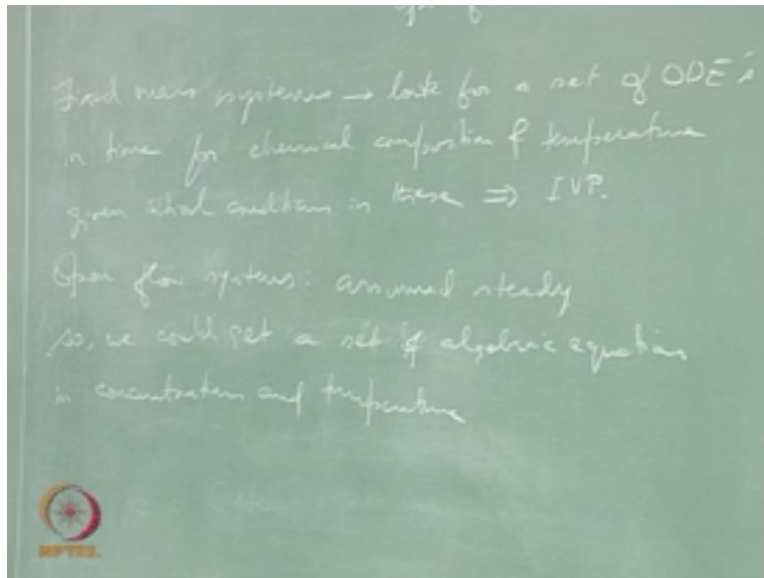 Fixed mass systems → look for a set of ODE's
in time for chemical composition & temperature
given initial conditions in these ⇒ IVP.
Open flow systems: assumed steady
so, we could get a set of algebraic equation
in concentration and temperature
NPTEL